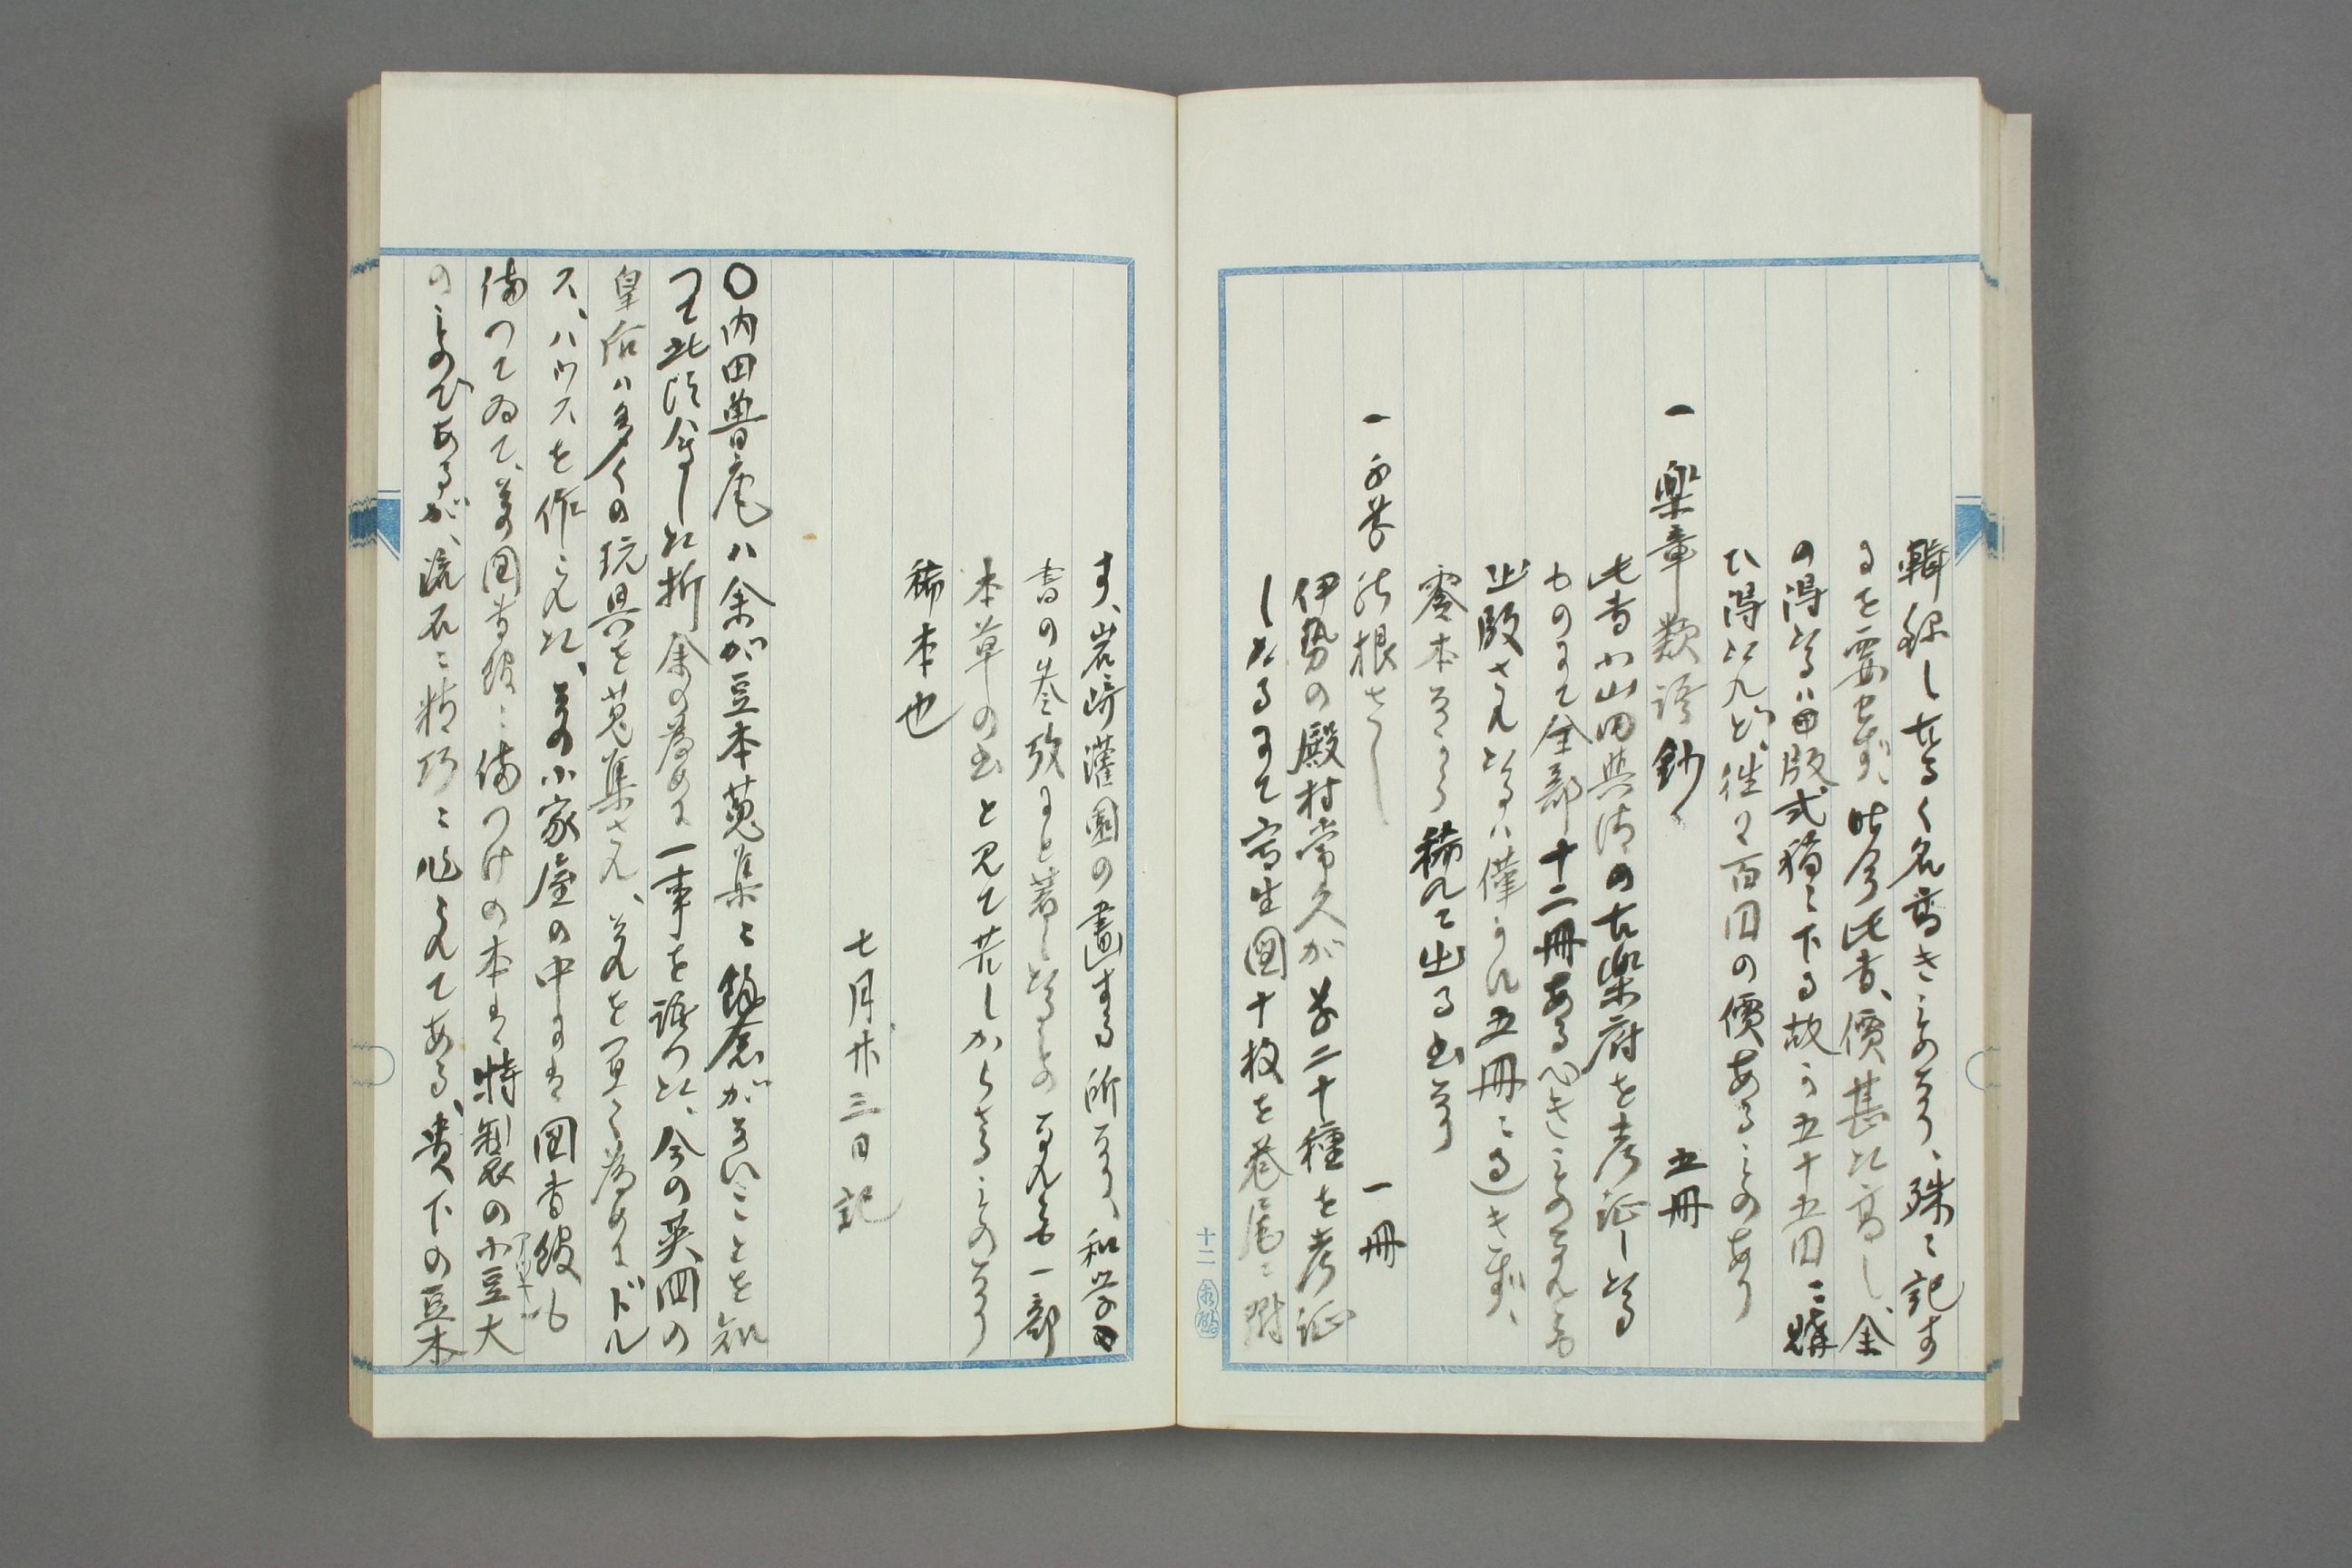 輯録したる名高きものなり、殊に記す
るを要せず、昨今此書、價甚た高し、余
の得たるは由版式稍に下る故か五十五円に購
ひ得たれど、往々百円の價あるものあり
一 楽章類語鈔 五冊
此書小山田與清の古楽府を考証したる
ものにて全部十二冊あるべきものなれども
出版されたるは僅かに五冊に過ぎず、
零本ながら稀れに出る書なり
一 千草の根さし 一冊
伊勢の殿村常久が草二十種を考証
したるにて写生図十枚を巻尾に附
す、岩崎灌園の畫する所なり、和学の
書の考攷にと著したるものなれども一部
本草の書と見て苦しからざるものなり
稀本也
七月廿三日記
〇内田魯庵ハ余が豆本蒐集に餘念がないことを知
つて此頃会した折余の為めに一事を語つた、今の英国の
皇后ハ多くの玩具を蒐集され、それを置く為めにドル
ス、ハウスを作られた、其の小家屋の中には図書館も
備つてゐて、其の図書館に備つけの本は特製の小豆大
のものであるが、流石に精巧に出来てある、貴下の豆本
十二